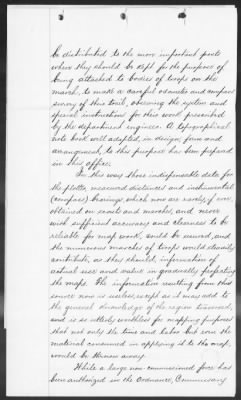 be distributed to the more important posts
where they should be kept for the purpose of
being attached to bodies of troops on the
march, to make a careful odometer and compass
survey of their trail, observing the system and
special instructions for this work presented
by the department engineer. A topographical
note book well adapted, in design, form and
arrangement, to this purpose has been prepared
in this office.
In this way those indispensable data for
the plotter, measured distances and instrumental
(compass) bearings, which now are rarely, if ever,
obtained on scouts and marches, and never
with sufficient accuracy and clearness to be
reliable for map work, would be secured, and
the numerous marches of troops would steadily
contribute, as they should, information of
actual use and value in gradually perfecting
the maps. The information resulting from this
source now is useless, except as it may add to
the general knowledge of the region traversed,
and is so utterly worthless for mapping purposes
that not only the time and labor but even the
material consumed in applying it to the map,
would be thrown away.
While a large non-commissioned force has
been authorized in the Ordnance, Commissary